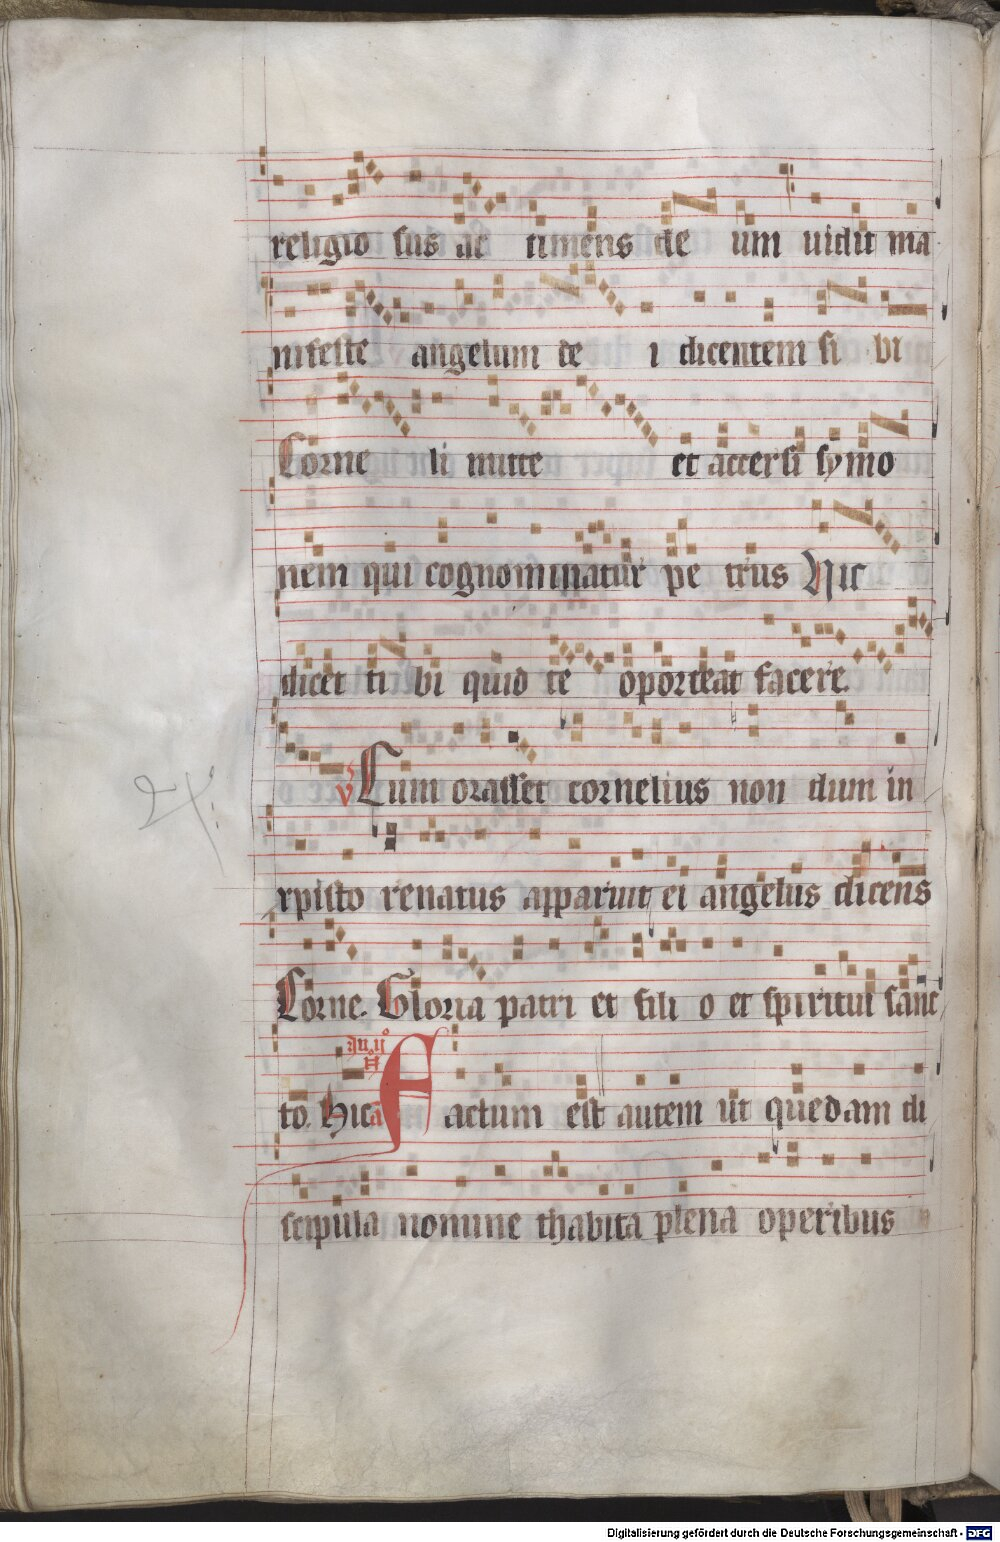 religio sus ac timens de um uidit ma
nifeste angelum de i dicentem si bi
Corne li mitte et accersi symo
nem qui cognominatur pe trus Hic
dicet ti bi quid te oporteat facere.
v Cum orasset cornelius non dum in
xpisto renatus apparuit ei angelus dicens
Corne. Gloria patri et fili o et spiritui sanc
to. Hic a Factum est autem ut quedam di
scipula nomine thabita plena operibus
Digitalisierung gefördert durch die Deutsche Forschungsgemeinschaft - DFG